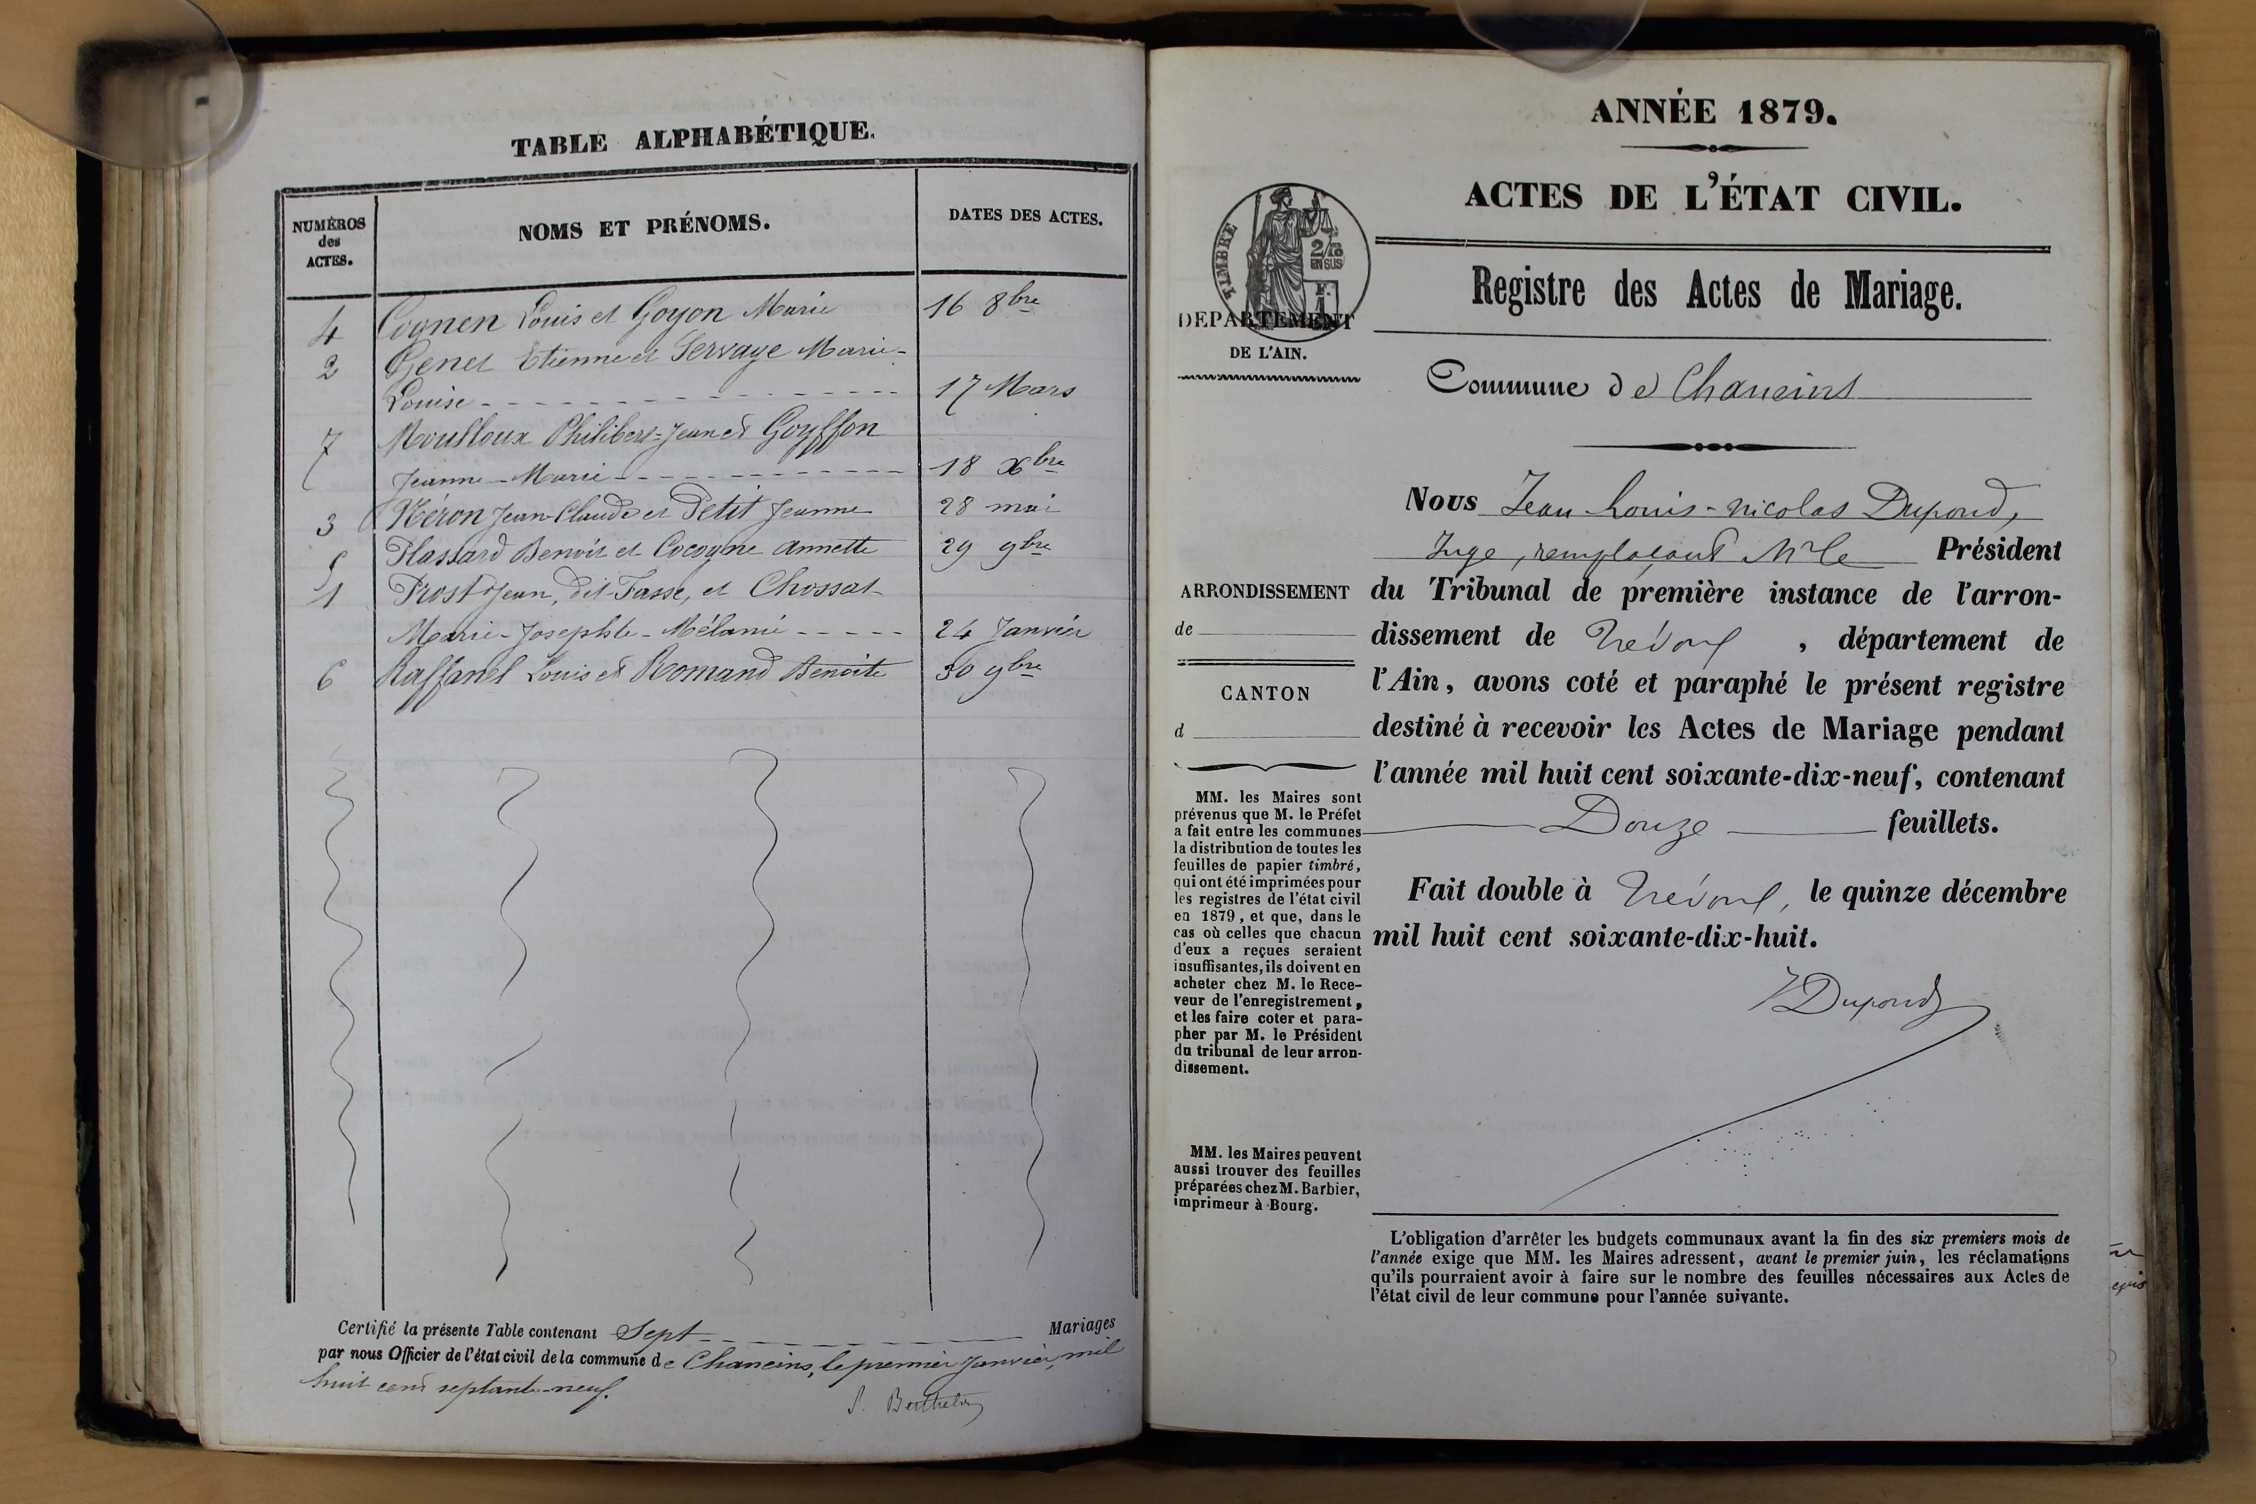 TABLE ALPHABÉTIQUE.
NUMÉROS
des
ACTES.
NOMS ET PRÉNOMS.
DATES DES ACTES.
4 Cognen Louis et Goyon Marie 16 8bre
2 Genet Etienne et Servaye Marie-
Louise 17 Mars
7 Moulloux Philibert-Jean et Goyffon
Jeanne-Marie 18 Xbre
3 Néron Jean-Claude et Petit Jeanne 28 mai
5 Plassard Benoit et Cocogne Annette 29 9bre
1 Prost Jean, dit Tasse, et Chossat
Marie-Josephte-Mélanie 24 Janvier
6 Raffanel Louis et Romand Benoite 30 9bre
Certifié la présente Table contenant Sept Mariages
par nous Officier de l'état civil de la commune de Chaneins, le premier Janvier, mil
huit cent septante-neuf.
Berthelon
ANNÉE 1879.
ACTES DE L'ÉTAT CIVIL.
TIMBRE
2/10
EN SUS
Registre des Actes de Mariage.
DEPARTEMENT
DE L'AIN.
Commune de Chaneins
Nous Jean-Louis-Nicolas Dupond,
Juge, remplaçant Mr le Président
du Tribunal de première instance de l'arron-
dissement de Trévoux, département de
l'Ain, avons coté et paraphé le présent registre
destiné à recevoir les Actes de Mariage pendant
l'année mil huit cent soixante-dix-neuf, contenant
Douze feuillets.
Fait double à Trévoux, le quinze décembre
mil huit cent soixante-dix-huit.
Dupond
ARRONDISSEMENT
de
CANTON
d
MM. les Maires sont
prévenus que M. le Préfet
a fait entre les communes
la distribution de toutes les
feuilles de papier timbré,
qui ont été imprimées pour
les registres de l'état civil
en 1879, et que, dans le
cas où celles que chacun
d'eux a reçues seraient
insuffisantes, ils doivent en
acheter chez M. le Rece-
veur de l'enregistrement,
et les faire coter et para-
pher par M. le Président
du tribunal de leur arron-
dissement.
MM. les Maires peuvent
aussi trouver des feuilles
préparées chez M. Barbier,
imprimeur à Bourg.
L'obligation d'arrêter les budgets communaux avant la fin des six premiers mois de
l'année exige que MM. les Maires adressent, avant le premier juin, les réclamations
qu'ils pourraient avoir à faire sur le nombre des feuilles nécessaires aux Actes de
l'état civil de leur commune pour l'année suivante.